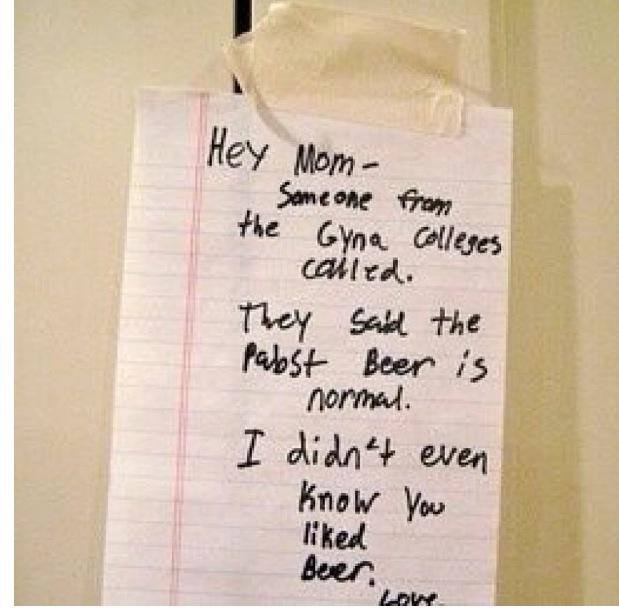 Hey Mom-
Someone from
the Gyna Colleges
called.
They said the
Pabst Beer is
normal.
I didn't even
know you
liked
Beer.
Love